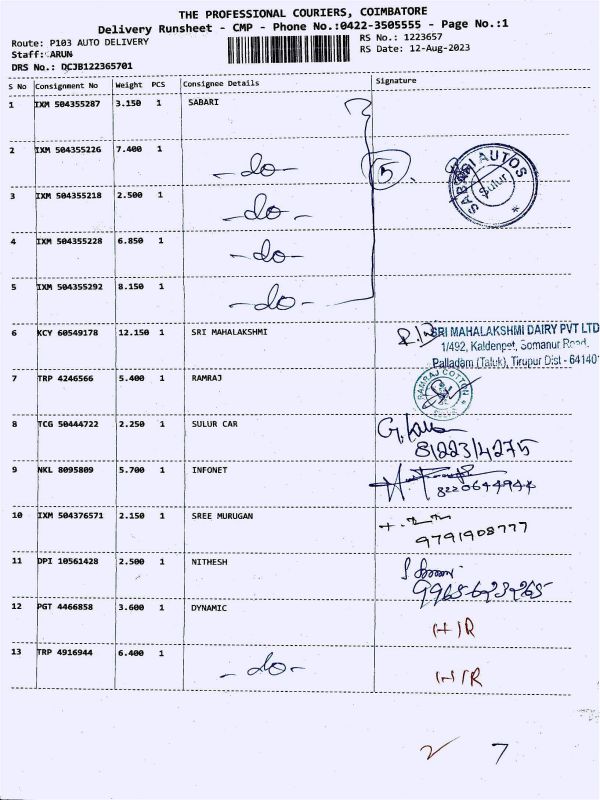 THE PROFESSIONAL COURIERS, COIMBATORE
Delivery Runsheet - CMP - Phone No.:0422-3505555 - Page No.:1
Route: P103 AUTO DELIVERY
RS No.: 1223657
Staff: ARUN
RS Date: 12-Aug-2023
DRS No.: DCJB122365701
S No Consignment No Weight PCS Consignee Details Signature
1 IXM 504355287 3.150 1 SABARI
2 IXM 504355226 7.400 1 -do- 5 SABARI AUTOS Sulur
3 IXM 504355218 2.500 1 -do-
4 IXM 504355228 6.850 1 -do-
5 IXM 504355292 8.150 1 -do-
6 KCY 60549178 12.150 1 SRI MAHALAKSHMI SRI MAHALAKSHMI DAIRY PVT LTD
1/492, Kaldenpet, Somanur Road,
Palladam (Taluk), Tirupur Dist - 64140
7 TRP 4246566 5.400 1 RAMRAJ RAMRAJ COTTON
8 TCG 50444722 2.250 1 SULUR CAR
8122314275
9 NKL 8095809 5.700 1 INFONET
8220644944
10 IXM 504376571 2.150 1 SREE MURUGAN
9791908777
11 DPI 10561428 2.500 1 NITHESH
9965623265
12 PGT 4466858 3.600 1 DYNAMIC H/R
13 TRP 4916944 6.400 1 -do- H/R
2 7